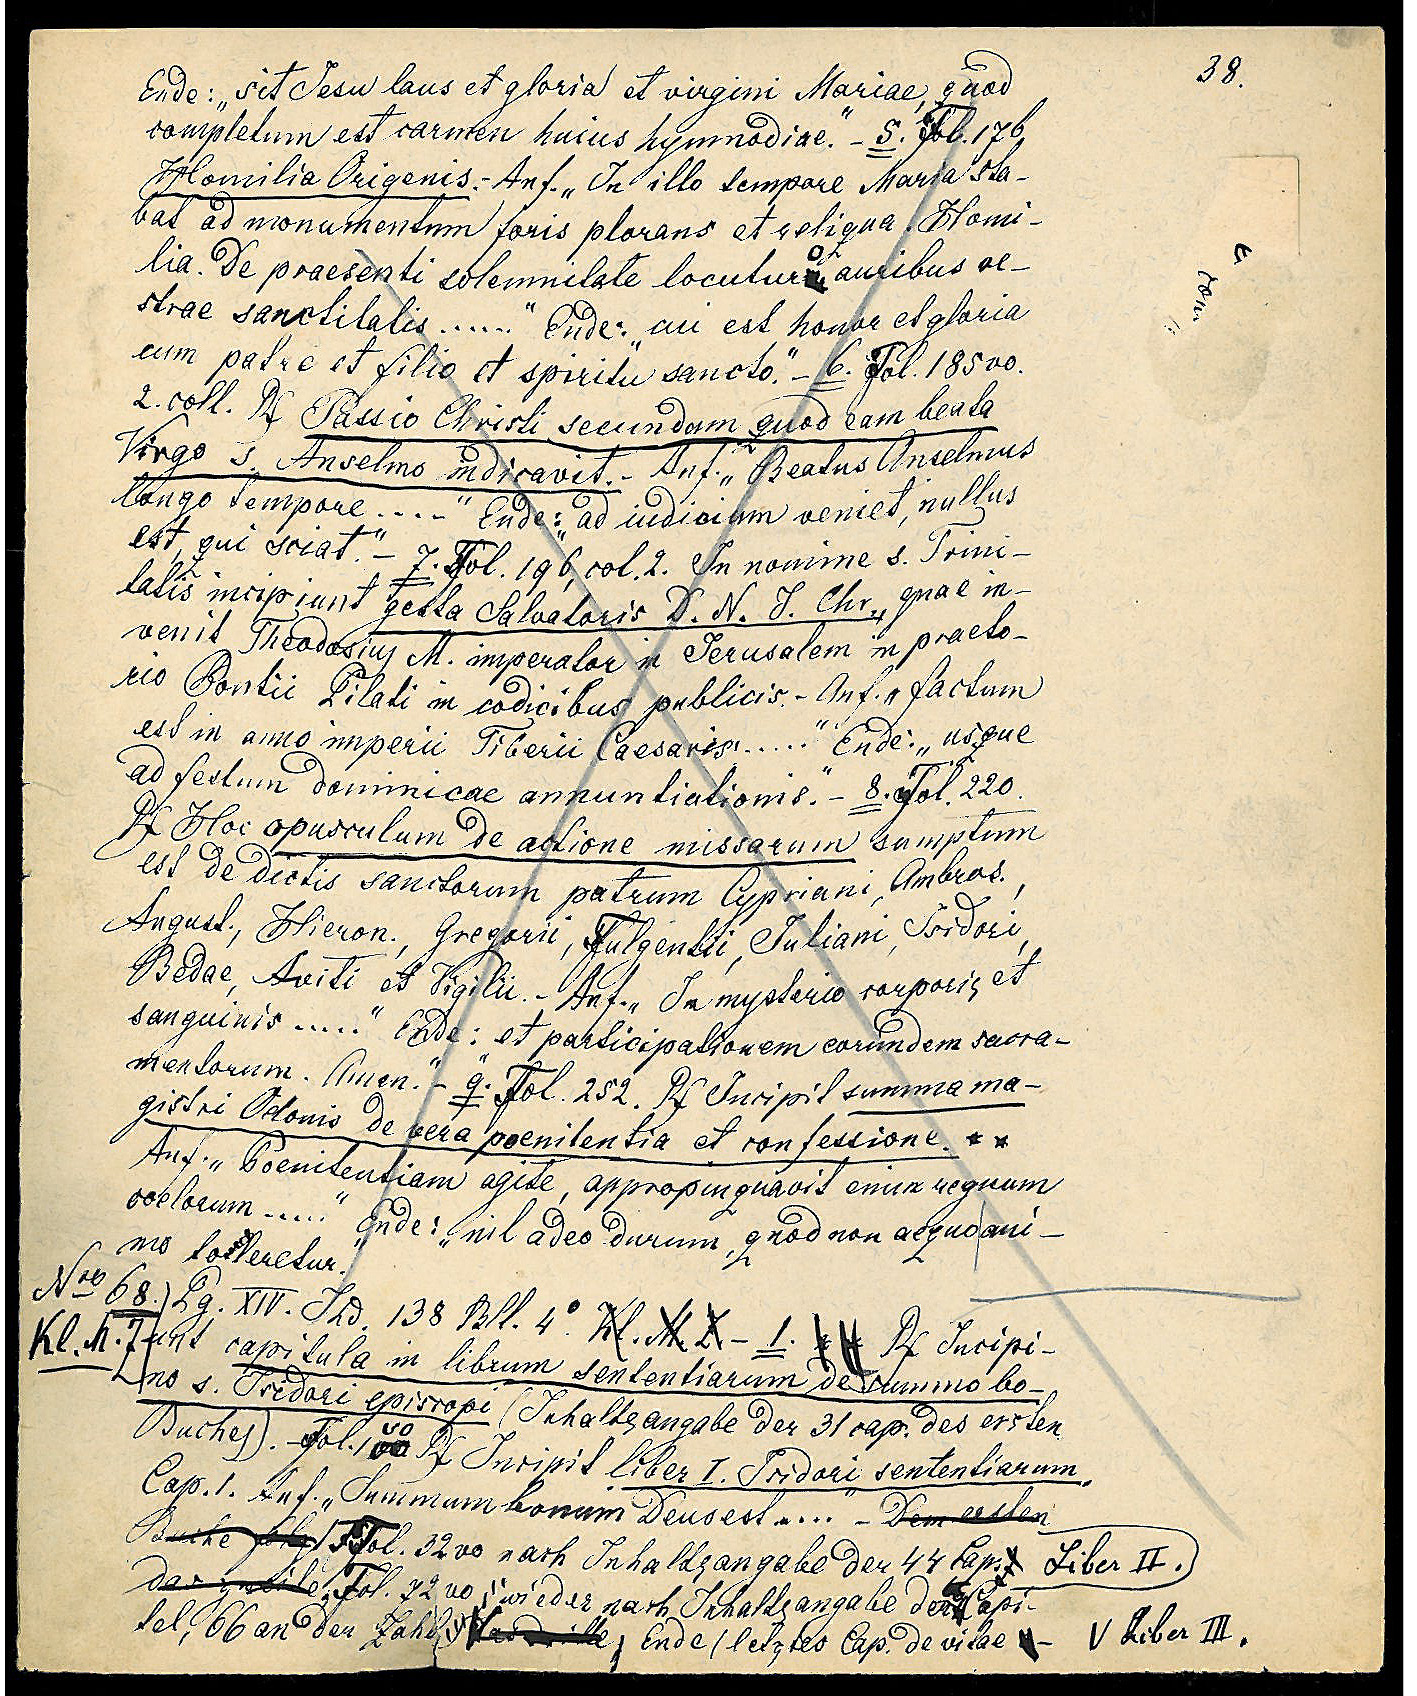 38.
Ende: „sit Jesu laus et gloria et virgini Mariae, quod
completum est carmen huius hymnodiae." – 5. Fol. 176
Homilia Origenis. – Anf. „In illo tempore Maria sta-
bat ad monumentum foris plorans et reliqua. Homi-
lia. De praesenti solemnitate locuturo auribus ve-
strae sanctitatis ......" Ende: „cui est honor et gloria
cum patre et filio et spiritu sancto." – 6. Fol. 185 vo.
2. coll. Rf Passio Christi secundum quod eam beata
Virgo s. Anselmo indicavit. – Anf. „Beatus Anselmus
longo tempore ....." Ende: „ad iudicium veniet, nullus
est, qui sciat." – 7. Fol. 196, col. 2. In nomine s. Trini-
tatis incipiunt gesta Salvatoris D. N. J. Chr., quae in-
venit Theodosius M. imperator in Jerusalem in praeto-
rio Pontii Pilati in codicibus publicis. – Anf. „factum
est in anno imperii Tiberii Caesaris ......" Ende: „usque
ad festum dominicae annuntiationis." – 8. Fol. 220.
Rf Hoc opusculum de actione missarum sumptum
est de dictis sanctorum patrum Cypriani, Ambros.,
August., Hieron., Gregorii, Fulgentii, Juliani, Isidori,
Bedae, Aviti et Vigilii. – Anf. „In mysterio corporis et
sanguinis ......" Ende: et participationem eorundem sacra-
mentorum. Amen." – 9. Fol. 252. Rf Incipit summa ma-
gistri Odonis de vera poenitentia et confessione.
Anf. „Poenitentiam agite, appropinquavit enim regnum
coelorum ....." Ende: „nil adeo durum, quod non aequo ani-
mo toleretur."
Nro 68. Pg. XIV. Jhd. 138 Bll. 4° Kl. M. Z – 1. Rf Incipi-
Kl. N. 7 unt capitula in librum sententiarum de summo bo-
no s. Isidori episcopi (Inhaltsangabe der 31 cap. des ersten
Buches). – Fol. 1 vo Rf Incipit liber I. Isidori sententiarum.
Cap. 1. Anf. „Summum bonum Deus est ....." – Dem ersten
Buche folgt Fol. 32 vo nach Inhaltsangabe der 44 Cap. Liber II.
das zweite, Fol. 72 vo wieder nach Inhaltsangabe der Capi-
tel, 66 an der Zahl, das dritte, Ende (letztes Cap. de vitae – V Liber III.